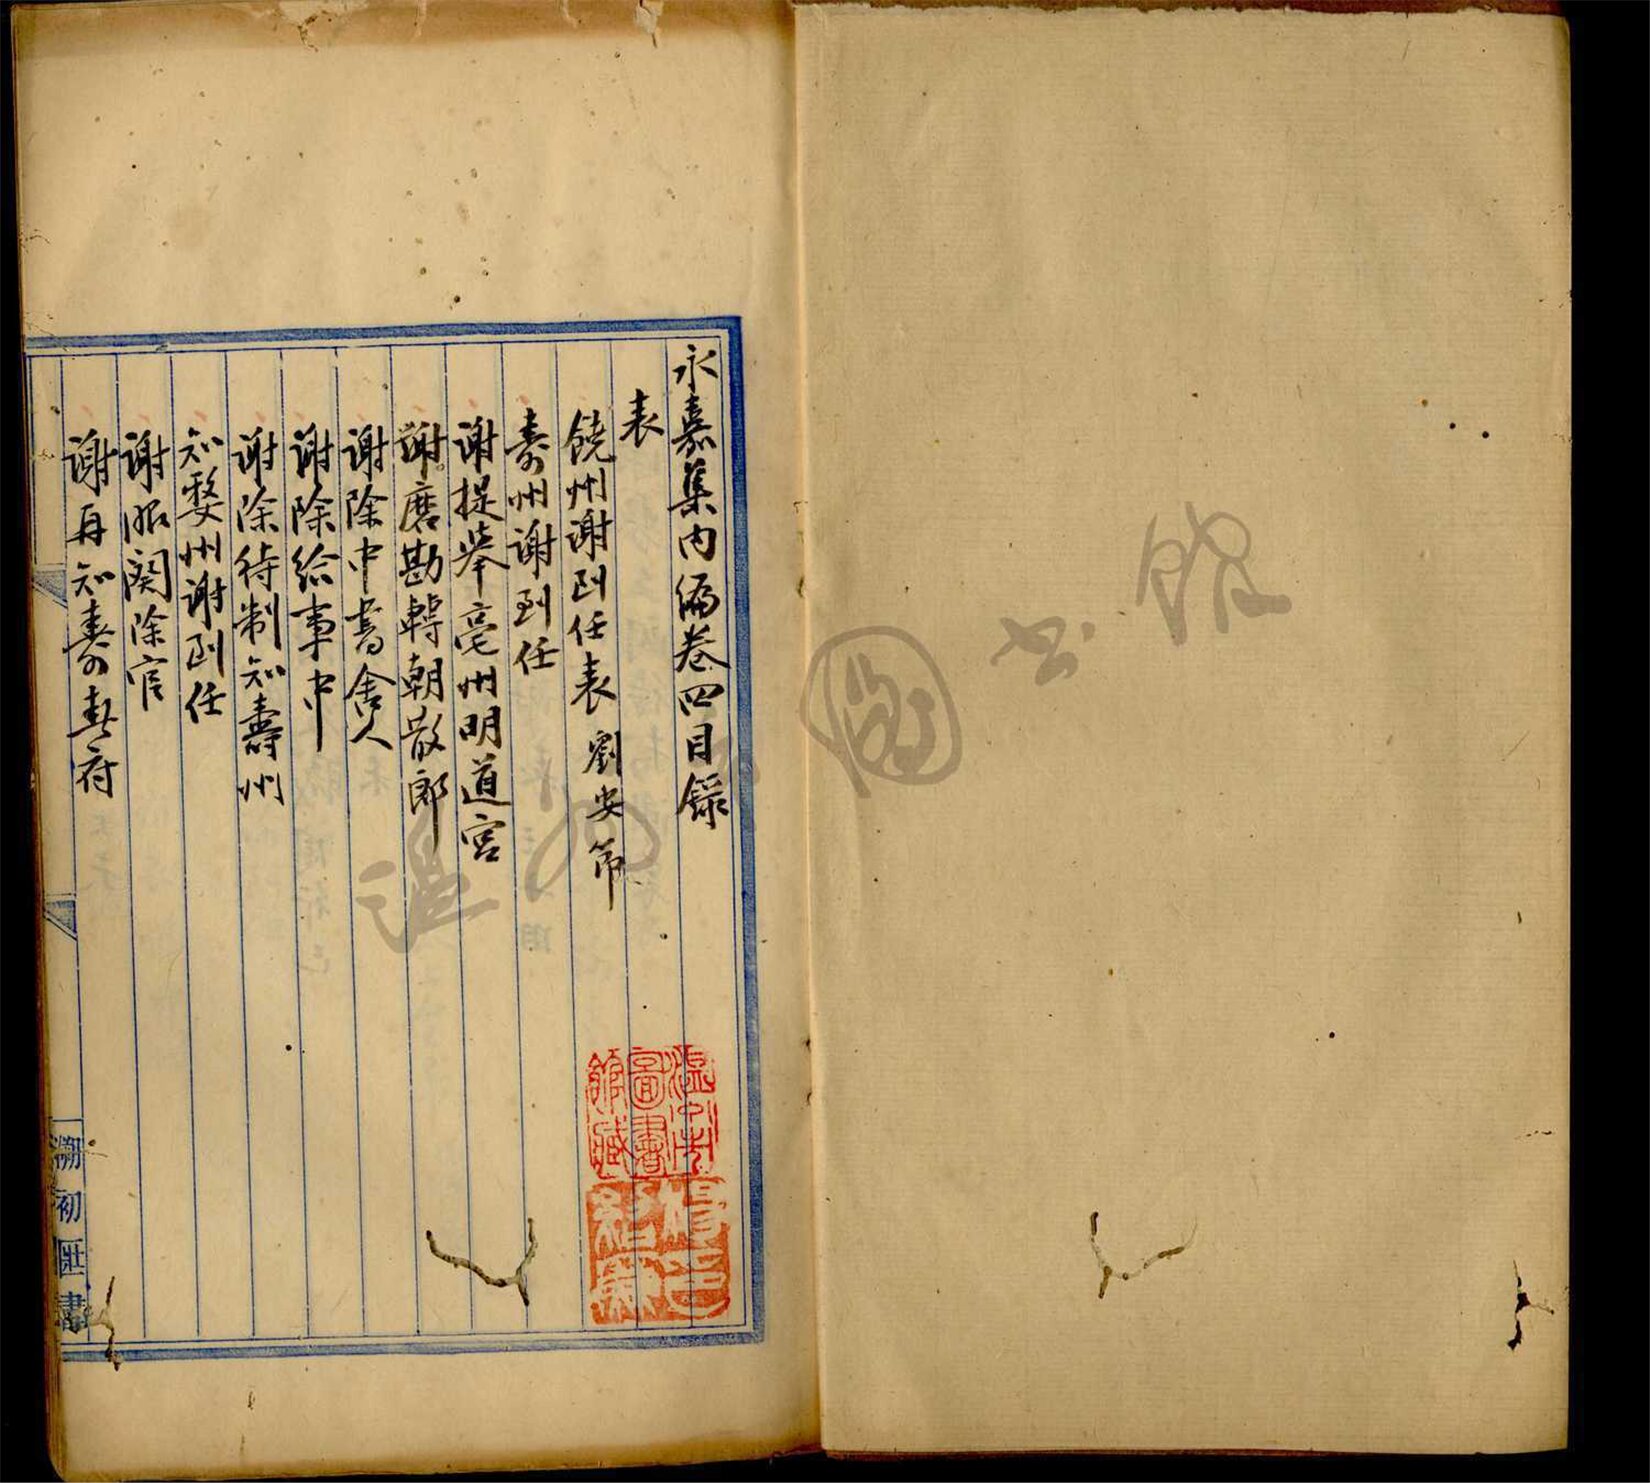 永嘉集内編卷四目錄
表
饒州謝到任表 劉安節
壽州謝到任
謝提舉亳州明道宮
謝磨勘轉朝散郎
謝除中書舍人
謝除給事中
謝除待制知壽州
知婺州謝到任
謝服闋除官
謝再知壽春府
溫州市
圖書
館藏
溯初
溫州圖书館